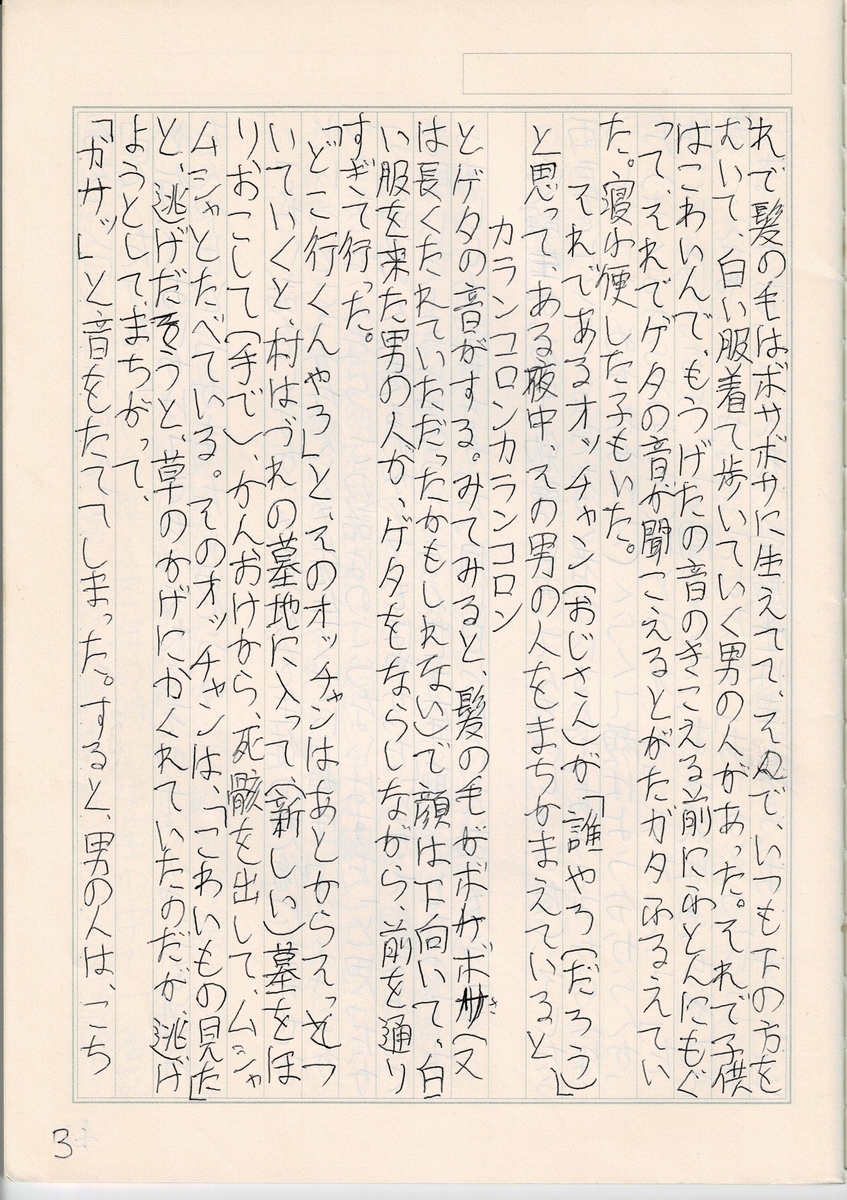 れで髪の毛はボサボサに生えてて、そんで、いつも下の方を
むいて、白い服着て歩いていく男の人があった。それで子供
はこわいんで、もうげたの音のきこえる前にふとんにもぐ
って、それでゲタの音が聞こえるとがたガタふるえてい
た。寝小便した子もいた。
それであるオッチャン(おじさん)が「誰やろ(だろう)」
と思って、ある夜中、その男の人をまちかまえていると、
カランコロンカランコロン
とゲタの音がする。みてみると、髪の毛がボサボサ(又
は長くたれていただったかもしれない)で顔は下向いて、白
い服を来た男の人が、ゲタをならしながら、前を通り
すぎて行った。
「どこ行くんやろ」と、そのオッチャンはあとからそっとつ
いていくと、村はづれの墓地に入って、(新しい)墓をほ
りおこして(手で)、かんおけから、死骸を出して、ムシャ
ムシャとたべている。そのオッチャンは、「こわいもの見た」
と、逃げだそうと、草のかげにかくれていたのだが、逃げ
ようとして、まちがって、
「ガサッ」と音をたててしまった。すると、男の人は、こち
3